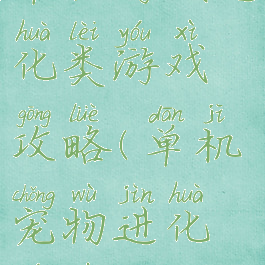 huà lèi yóu xì
化类游戏
gōng lüè dān jī
攻略(单机
chǒng wù jìn huà
宠物进化